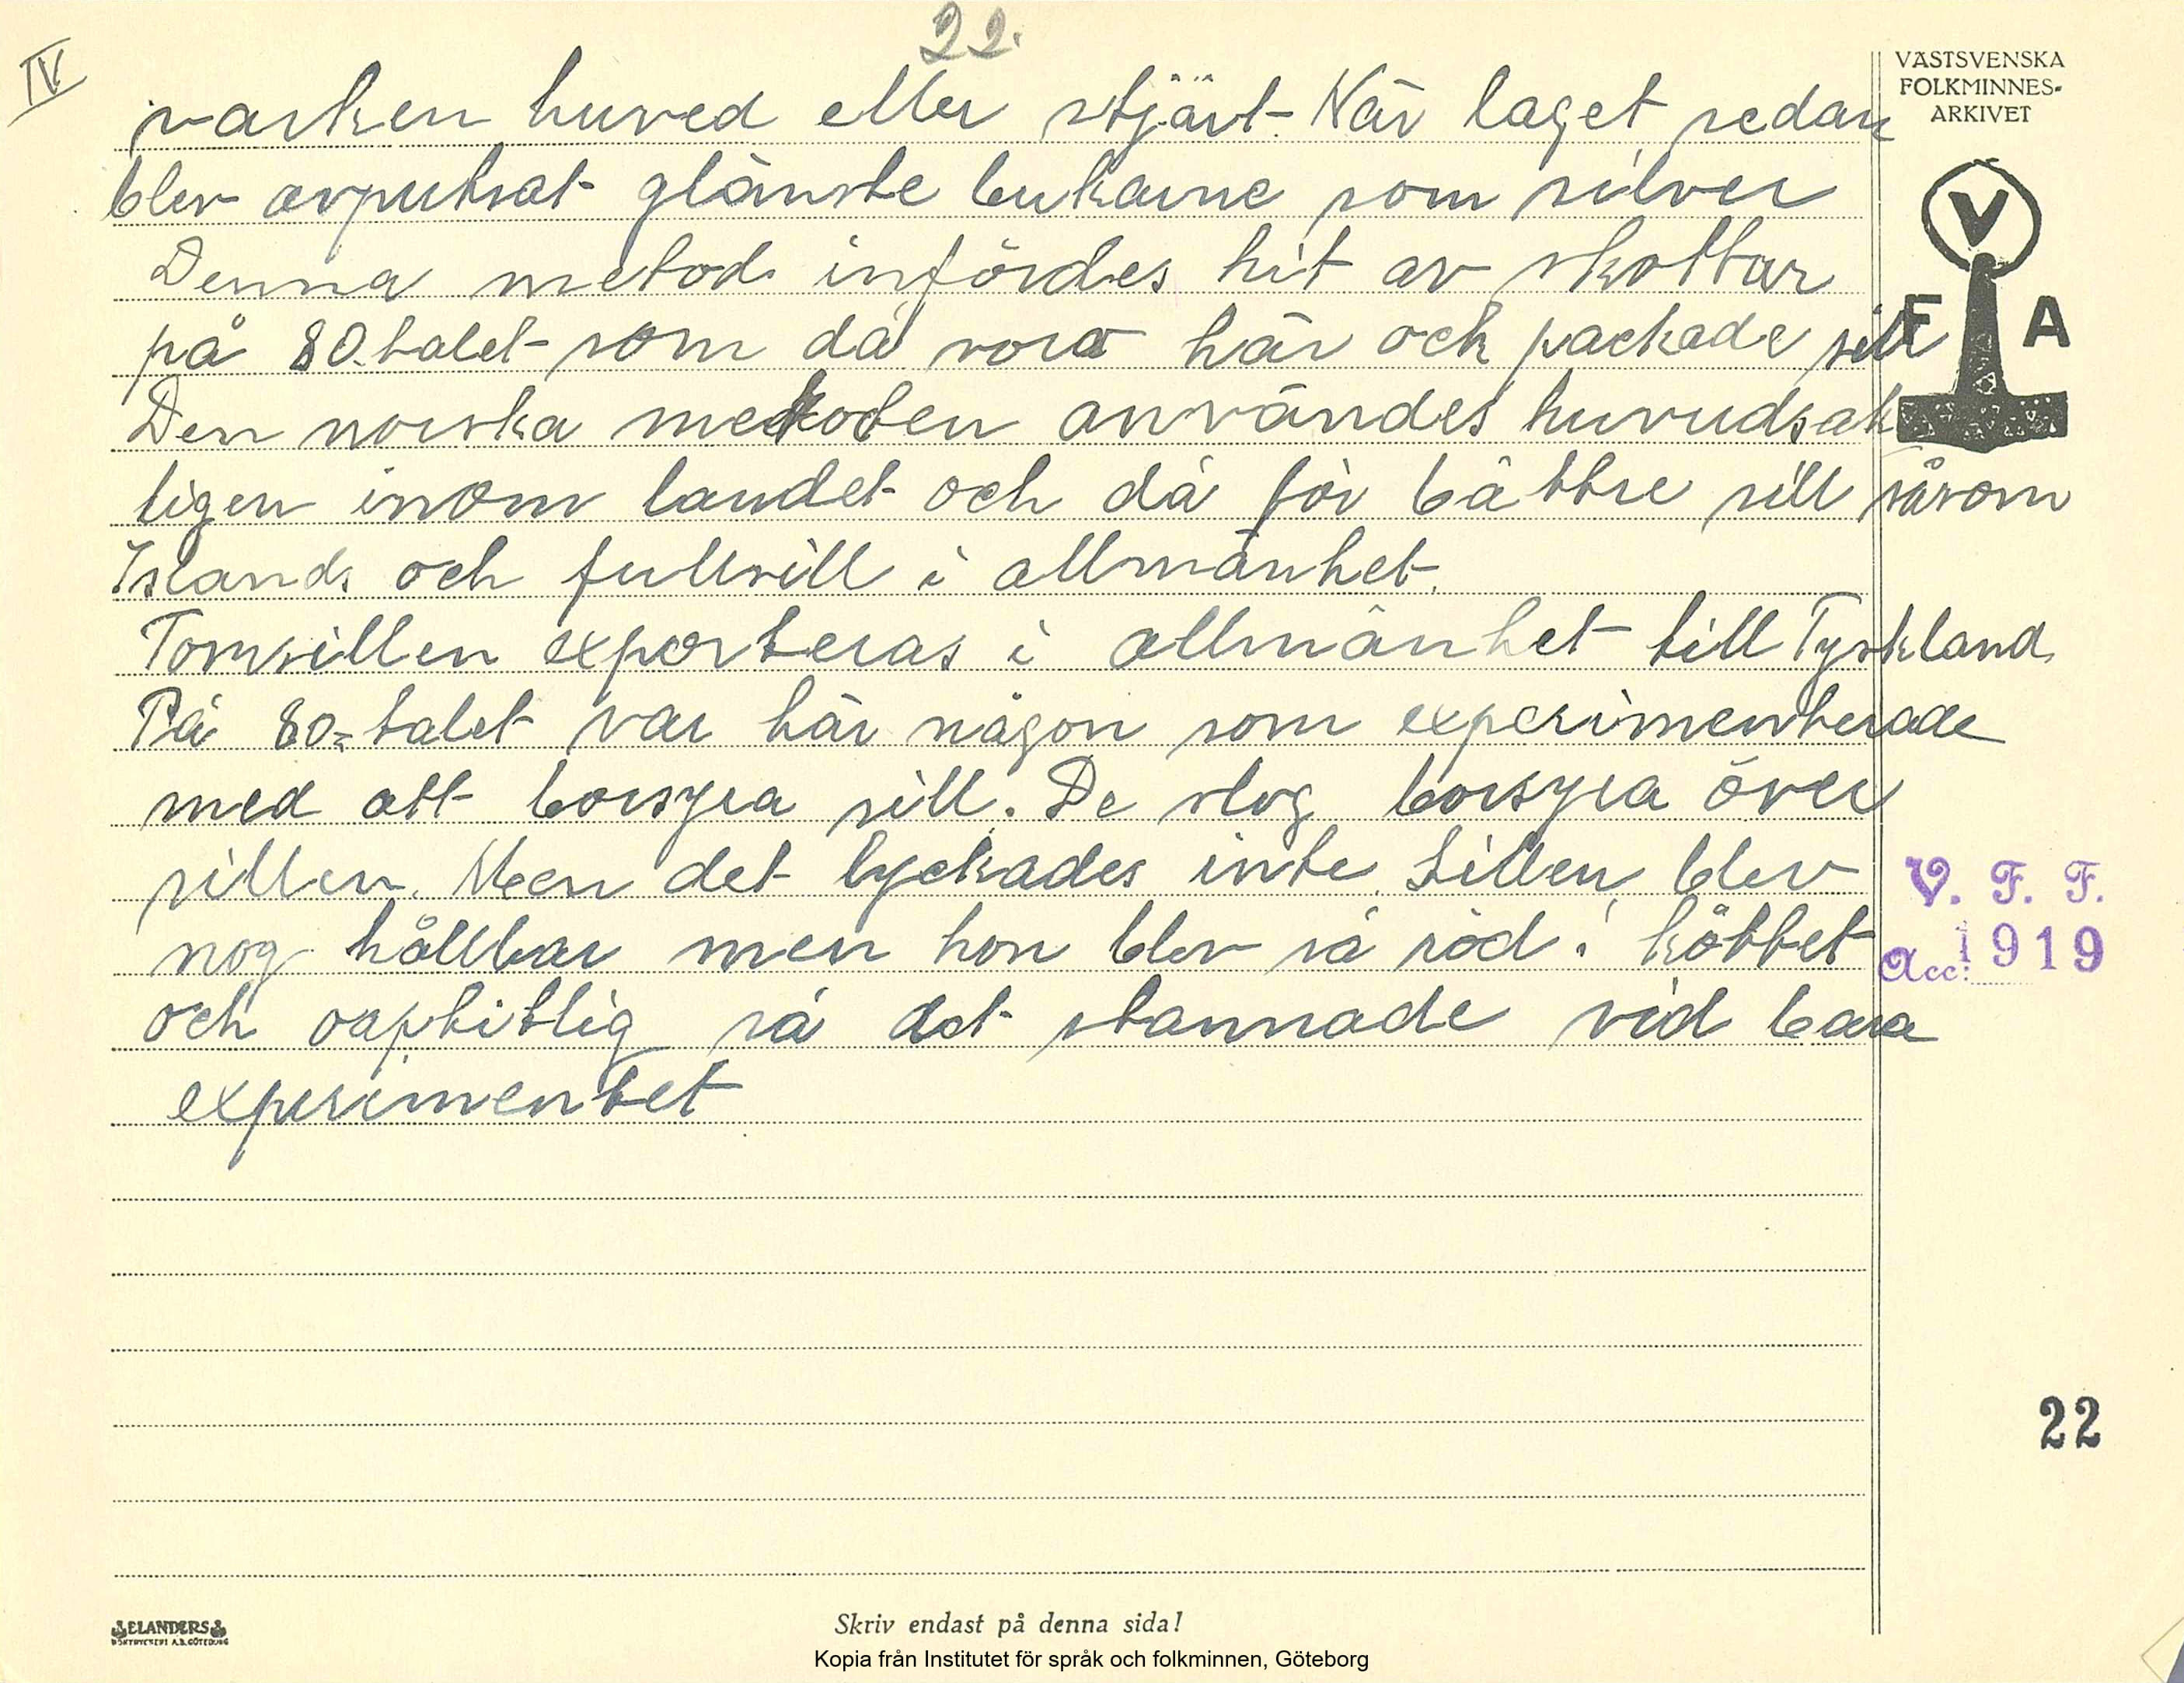 IV
22.
VÄSTSVENSKA
FOLKMINNES-
ARKIVET
V
F A
varken huved eller stjärt. När laget sedan
blev avputsat glänste bukarne som silver
Denna metod infördes hit av skottar
på 80.talet som då vora här och packade sill
Den norska metoden användes huvudsak
ligen inom landet och då för bättre sill såsom
Islands och fullsill i allmänhet.
Tomsillen exporteras i allmänhet till Tyskland.
På 80=talet var här någon som experimenterade
med att borsyra sill. De slog borsyra över
sillen. Men det lyckades inte. Sillen blev
nog hållbar men hon blev så röd i köttet
och oaptitlig så det stannade vid bara
experimentet
V. F. F.
Acc: 1919
22
ELANDERS
BOKTRYCKERI A.B. GÖTEBORG
Skriv endast på denna sida!
Kopia från Institutet för språk och folkminnen, Göteborg